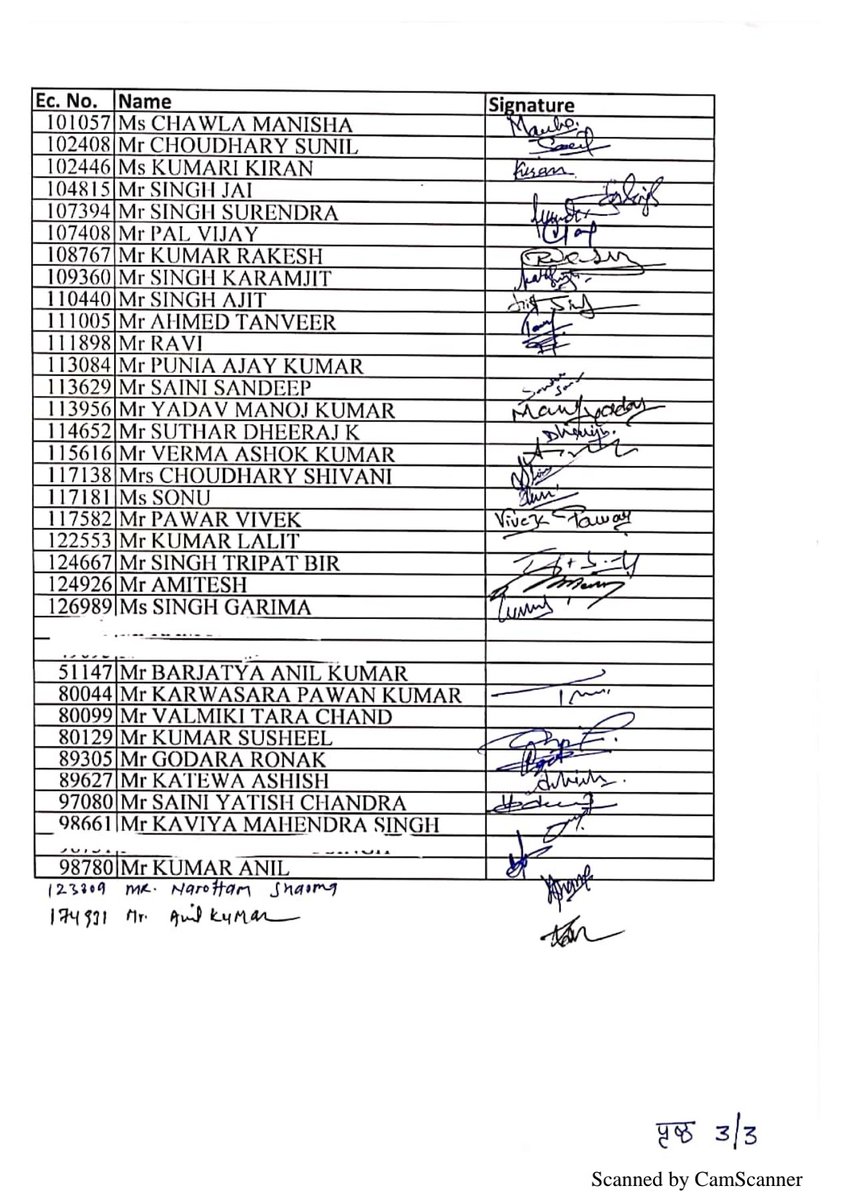 Ec. No. Name Signature
101057 Ms CHAWLA MANISHA
102408 Mr CHOUDHARY SUNIL
102446 Ms KUMARI KIRAN Kiran
104815 Mr SINGH JAI
107394 Mr SINGH SURENDRA
107408 Mr PAL VIJAY
108767 Mr KUMAR RAKESH
109360 Mr SINGH KARAMJIT
110440 Mr SINGH AJIT
111005 Mr AHMED TANVEER
111898 Mr RAVI
113084 Mr PUNIA AJAY KUMAR
113629 Mr SAINI SANDEEP
113956 Mr YADAV MANOJ KUMAR
114652 Mr SUTHAR DHEERAJ K
115616 Mr VERMA ASHOK KUMAR
117138 Mrs CHOUDHARY SHIVANI
117181 Ms SONU
117582 Mr PAWAR VIVEK Vivek Pawar
122553 Mr KUMAR LALIT
124667 Mr SINGH TRIPAT BIR
124926 Mr AMITESH
126989 Ms SINGH GARIMA
51147 Mr BARJATYA ANIL KUMAR
80044 Mr KARWASARA PAWAN KUMAR
80099 Mr VALMIKI TARA CHAND
80129 Mr KUMAR SUSHEEL
89305 Mr GODARA RONAK
89627 Mr KATEWA ASHISH
97080 Mr SAINI YATISH CHANDRA
98661 Mr KAVIYA MAHENDRA SINGH
98780 Mr KUMAR ANIL
123809 MR. Narottam Sharma
174931 Mr. Anil KUMAR
पृष्ठ 3/3
Scanned by CamScanner